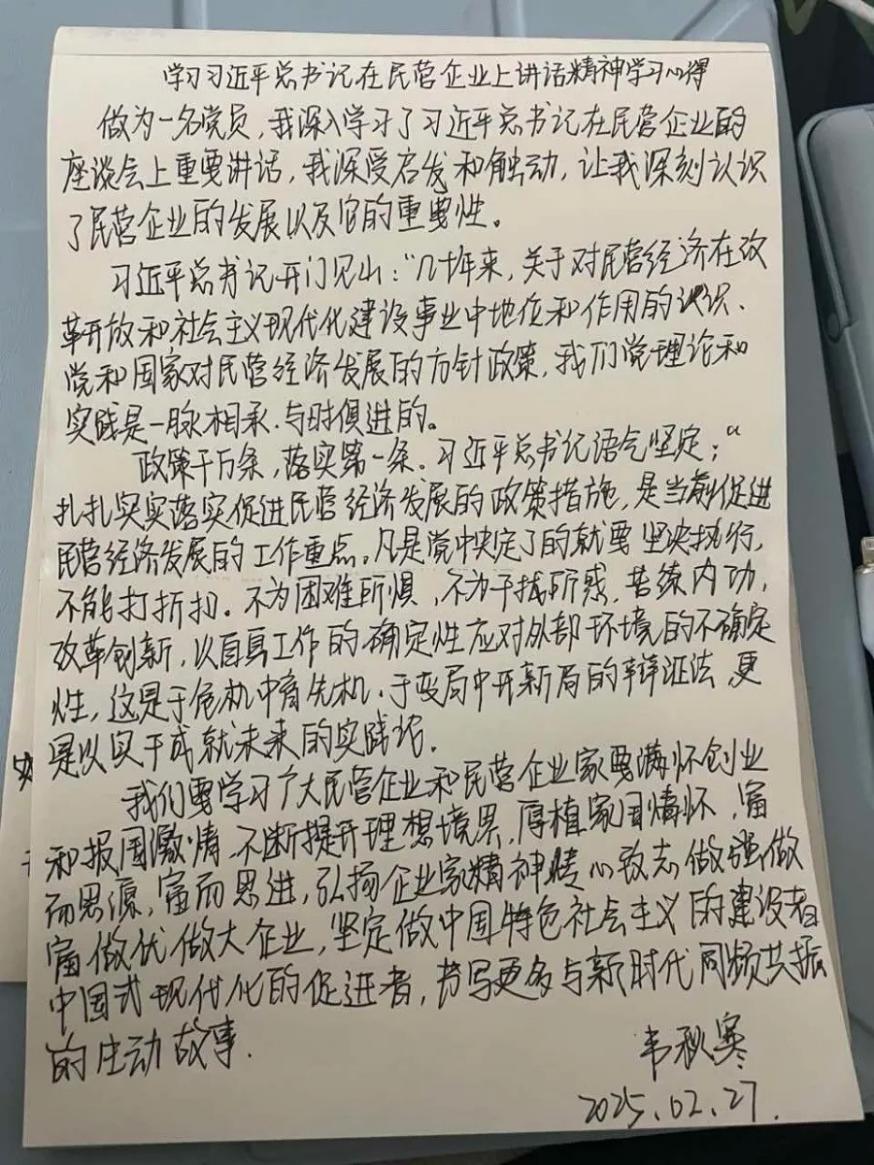 学习习近平总书记在民营企业上讲话精神学习心得
做为一名党员,我深入学习了习近平总书记在民营企业的
座谈会上重要讲话,我深受启发和触动,让我深刻认识
了民营企业的发展以及它的重要性。
习近平总书记开门见山:“几十年来,关于对民营经济在改
革开放和社会主义现代化建设事业中地位和作用的认识、
党和国家对民营经济发展的方针政策,我们党理论和
实践是一脉相承、与时俱进的。
政策千万条,落实第一条。习近平总书记语气坚定:“
扎扎实实落实促进民营经济发展的政策措施,是当前促进
民营经济发展的工作重点。凡是党中央定了的就要坚决执行,
不能打折扣。不为困难所惧,不为干扰所惑,苦练内功,
改革创新,以自身工作的确定性应对外部环境的不确定
性,这是于危机中育先机、于变局中开新局的辩证法,更
是以实干成就未来的实践论.
我们要学习广大民营企业和民营企业家要满怀创业
和报国激情,不断提升理想境界,厚植家国情怀,富
而思源,富而思进,弘扬企业家精神,专心致志做强做
富做优做大企业,坚定做中国特色社会主义的建设者
中国式现代化的促进者,书写更多与新时代同频共振
的生动故事.
韦秋寒
2025.02.27.